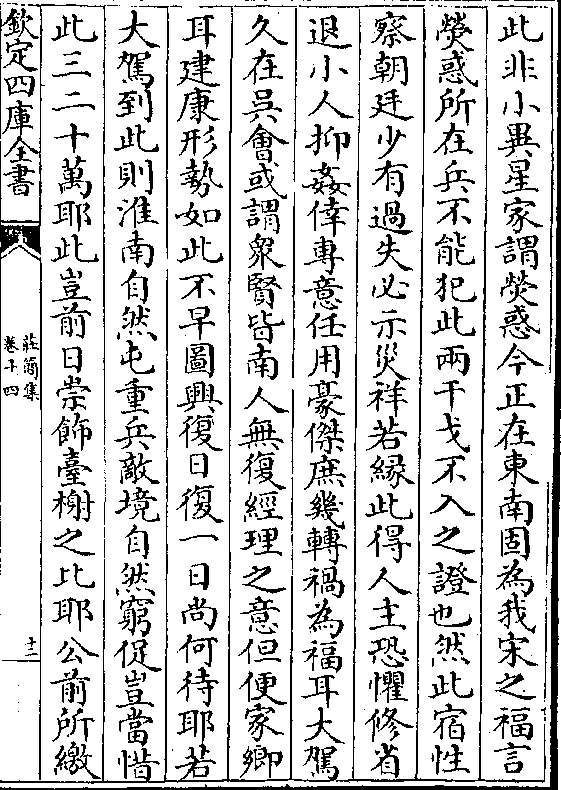 此非小異星家謂熒惑今正在東南固為我宋之福言
熒惑所在兵不能犯此兩干戈不入之證也然此宿性
察朝廷少有過失必示災祥若縁此得人主恐懼修省
退小人抑姦倖專意任用豪傑庶幾轉禍為福耳大駕
久在吳會或謂衆賢皆南人無復經理之意但便家鄉
耳建康形勢如此不早圖興復日復一日尚何待耶若
大駕到此則淮南自然屯重兵敵境自然窮促豈當惜
此三二十萬耶此豈前日崇飾臺榭之比耶公前所繳
欽定四庫全書
莊簡集
卷十四
十三